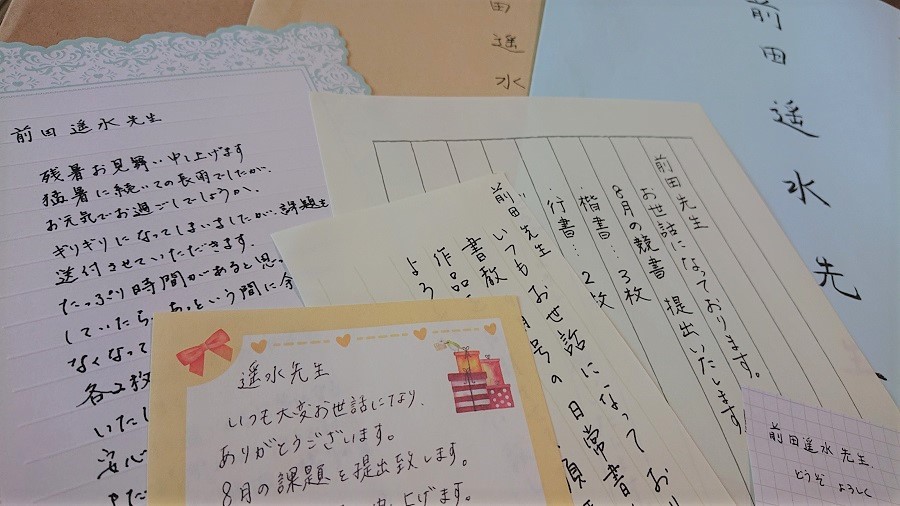 前田遥水先生
残暑お見舞い申し上げます
猛暑に続いての長雨でしたが、
お元気でお過ごしでしょうか。
ギリギリになってしまいましたが、課題を
送付させていただきます。
たっぷり時間があると思
していたら、あっという間に
なくなって
各2枚
いたし
安心
田遥水
前田遥水先
前田先生
お世話になっております。
8月の競書 提出いたします!
楷書… 3枚
行書… 2枚
前田先生
いつもお世話になってお
月号の日常書
書
作品
よろ
遥水先生
いつも大変お世話になり、
ありがとうございます。
8月の課題を提出致します。
上げます。
前田遥水先生、
どうぞ よろしく